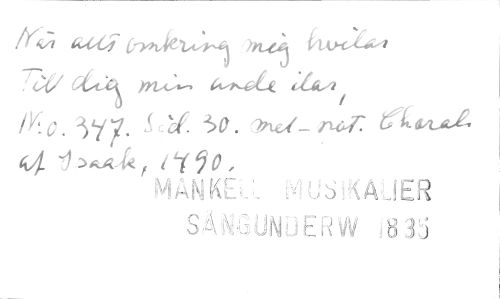 När allt omkring mig hvilar
Till dig min ande ilar,
N:o. 347. Sid. 30. mel-not. Choral
af Isaak, 1490.
MANKELL MUSIKALIER
SÅNGUNDERW 1835